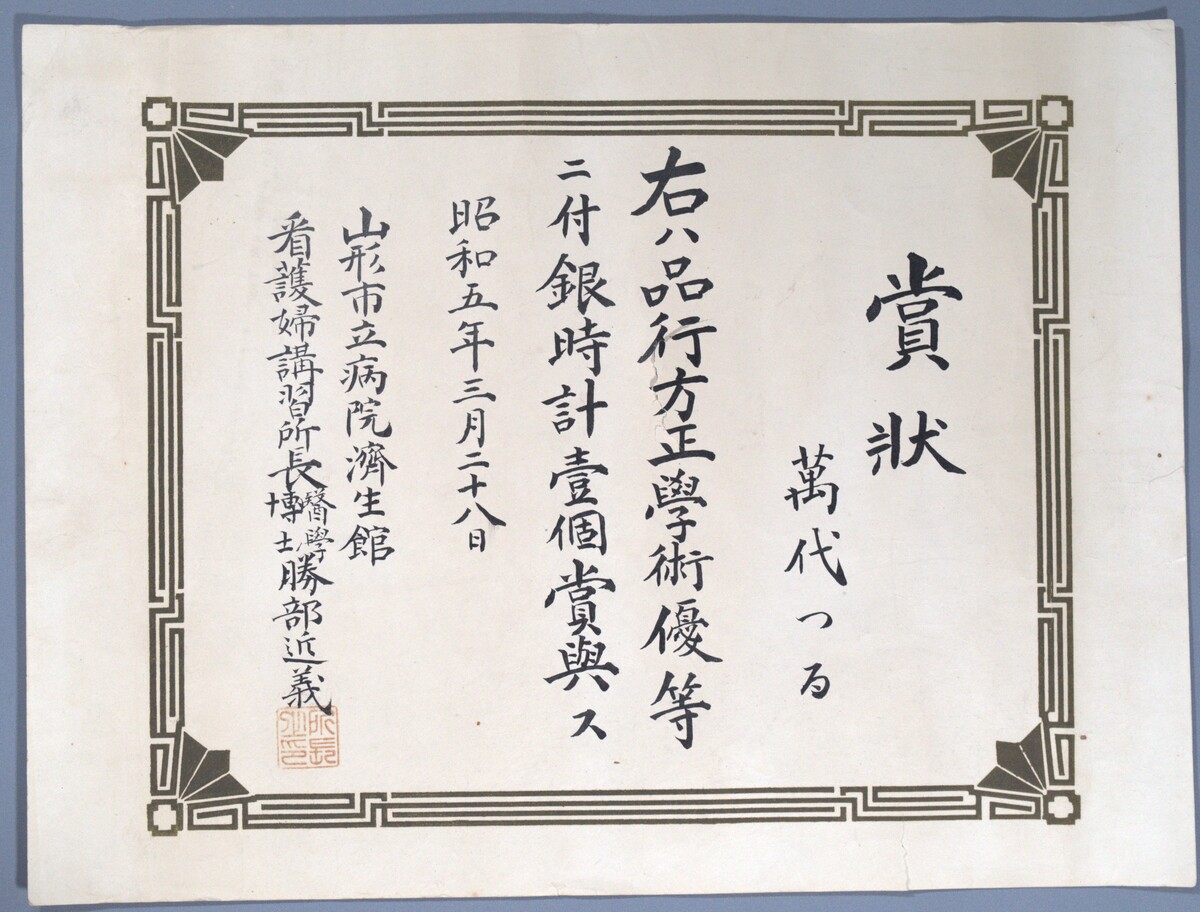 賞狀
萬代つる
右ハ品行方正學術優等
ニ付銀時計壹個賞與ス
昭和五年三月二十八日
山形市立病院濟生館
看護婦講習所長醫學博士勝部近義
所長之印